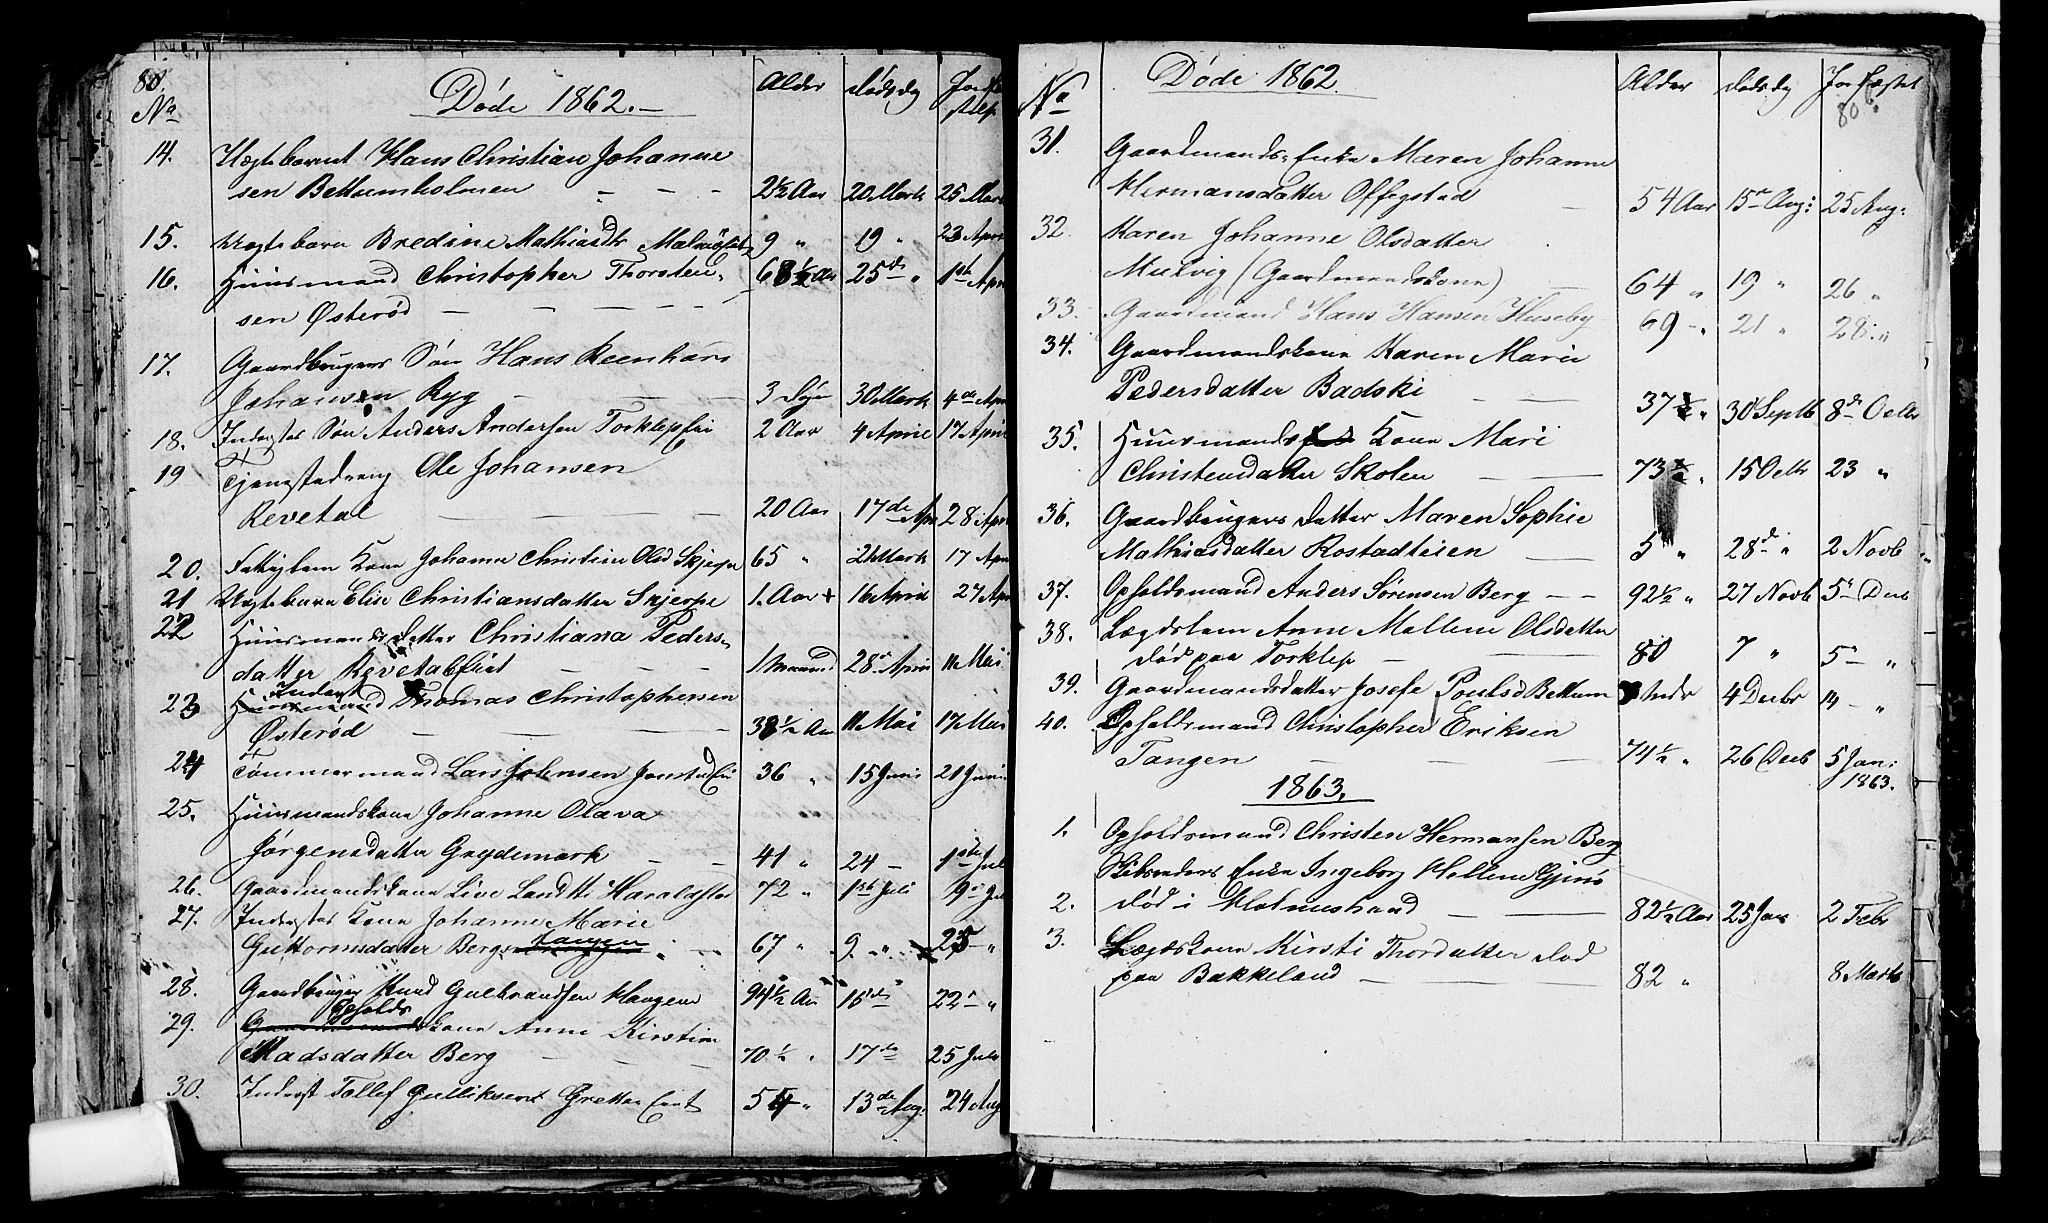 80.
No
Døde 1862.
Alder
Dødsdg
14.
Lægtsbarnet Hans Christian Johanne
sen Bettumholmen - - - 2½ Aar 20 Marts 25 Mar
15. Lægtsbarn Bredine Mathiasdtr 9 " 19 " 23 Apri
16. Huusmand Christopher Thorsten- 68½ Aar 25de " 1ste Apri
sen Østerød - - - -
17. Gaardbrugers Søn Hans
Johansen Ryg - - 3 Dge 30 Marts 4de Apr
18. Inderstes Søn Anders Andersen 2 Aar 4 April 17 April
19 Tjenestedreng Ole Johansen
Revetal - - - 20 Aar 17de Apr 28 Apr
20. Fattiglem Kone Johanne Christine Olsd Skjerpe 65 " Marts 17 Apr
21 Lægtsbarn Elise Christiansdatter Skjerpe 1. Aar + 16 April 27 Apr
22 Huusmands Datter Christiana Peders-
datter - - 1 Maaned 28 April 11 Mai
23 Inderst Thomas Christophersen
Østerød - - - - 38½ Aar 11 Mai 17 Mai
24 Tømmermand Lars 36 " 15 Juni 21 Juni
25. Huusmandskone Johanne Olava
Jørgensdatter Grydemark - - 41 " 24 - 1ste Jul
26. Gaardmandskone Live 72 " 1ste Juli 9 Jul
27. Inderstes Kone Johanne Marie
Guttormsdatter Berg - 67 " 9 " 25 "
28. Gaardbruger Knud Gulbrandsen Haugen 94½ Aar 22 "
29. Opholds kone Anne Kirstine
Madsdatter Berg - - 70½ " 17de 25 Juli
30. Inderst Tollef Gulliksen 54 " 13de Aug. 24 Aug
No
Døde 1862.
Alder Dødsdg
80b.
31. Gaardmands-Enke Maren Johanne
Hermansdatter Offigstad - 54 Aar 15 Aug: 25 Aug:
32. Karen Johanne Olsdatter
Mulvig (Gaardmandskone) - 64 " 19 " 26 "
33. Gaardmand Hans Hansen Huseby 69 - " 21 " 28. "
34. Gaardmandskone Karen Marie
Pedersdatter Badski - - 37 " 30 Septb 8de Octb
35. Huusmands Kone Mari
Christensdatter Skolen - - 73 " 15 Octb 23 "
36. Gaardbrugers Datter Maren Sophie
Mathiasdatter Rostadteien - 5 " 28de " 2 Novb
37. Opholdsmand Anders Sørensen Berg - - 92½ " 27 Novb 5 Decb
38. Lægdslem Anne Mallene Olsdatter
død paa Torklep - - 80 7 " 5 - "
39. Gaardmandsdatter Josefe Poulsd Bettum 4 Decbr 14 - "
40. Opholdsmand Christopher Eriksen
Tangen - - - 74½ " 26 Decb 5 Jan:
1863.
1863.
1. Opholdsmand Christen Hermansen Berg
Enke Ingeborg Hellene
2. død i Holmestrand - - 82½ Aar 25 Jan 2 Febr
3. Lægdskone Kirsti Thordatter død
paa Bakkeland - - - 82 " 8 Marts